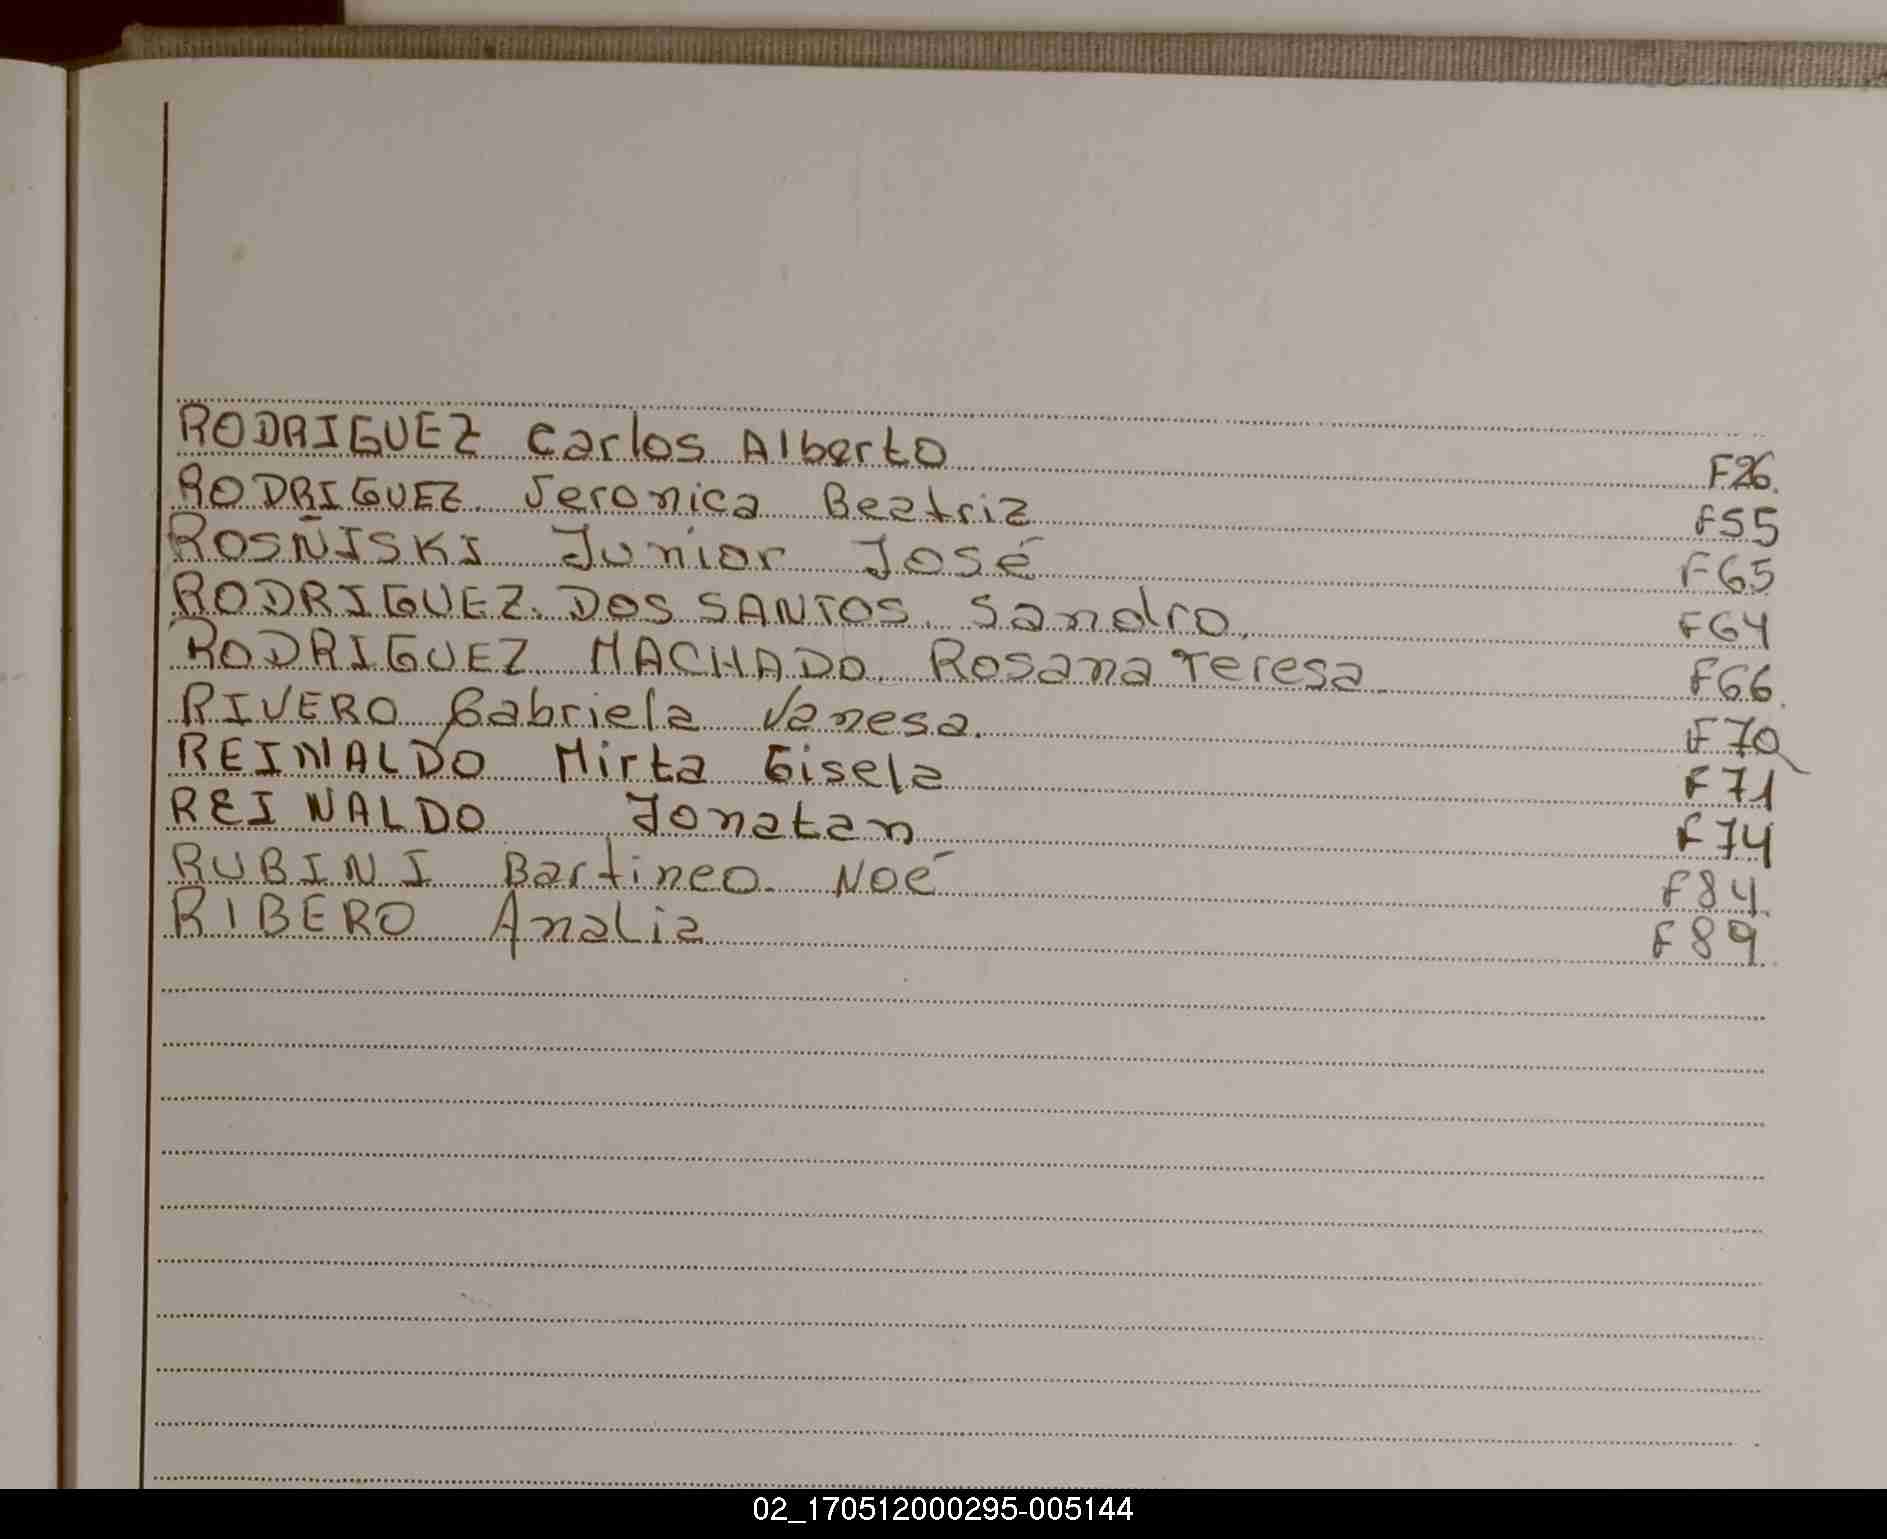 RODRIGUEZ Carlos Alberto F26.
RODRIGUEZ. Veronica Beatriz F55
ROSÑISKI Junior José F65
RODRIGUEZ. DOS SANTOS. Sandro. F64
RODRIGUEZ MACHADO. Rosana Teresa F66.
RIVERO Gabriela Vanesa. F70
REINALDO Mirta Gisela F71
REINALDO Jonatan F74
RUBINI Bartineo. Noé F84.
RIBERO Analia F89.
02_170512000295-005144